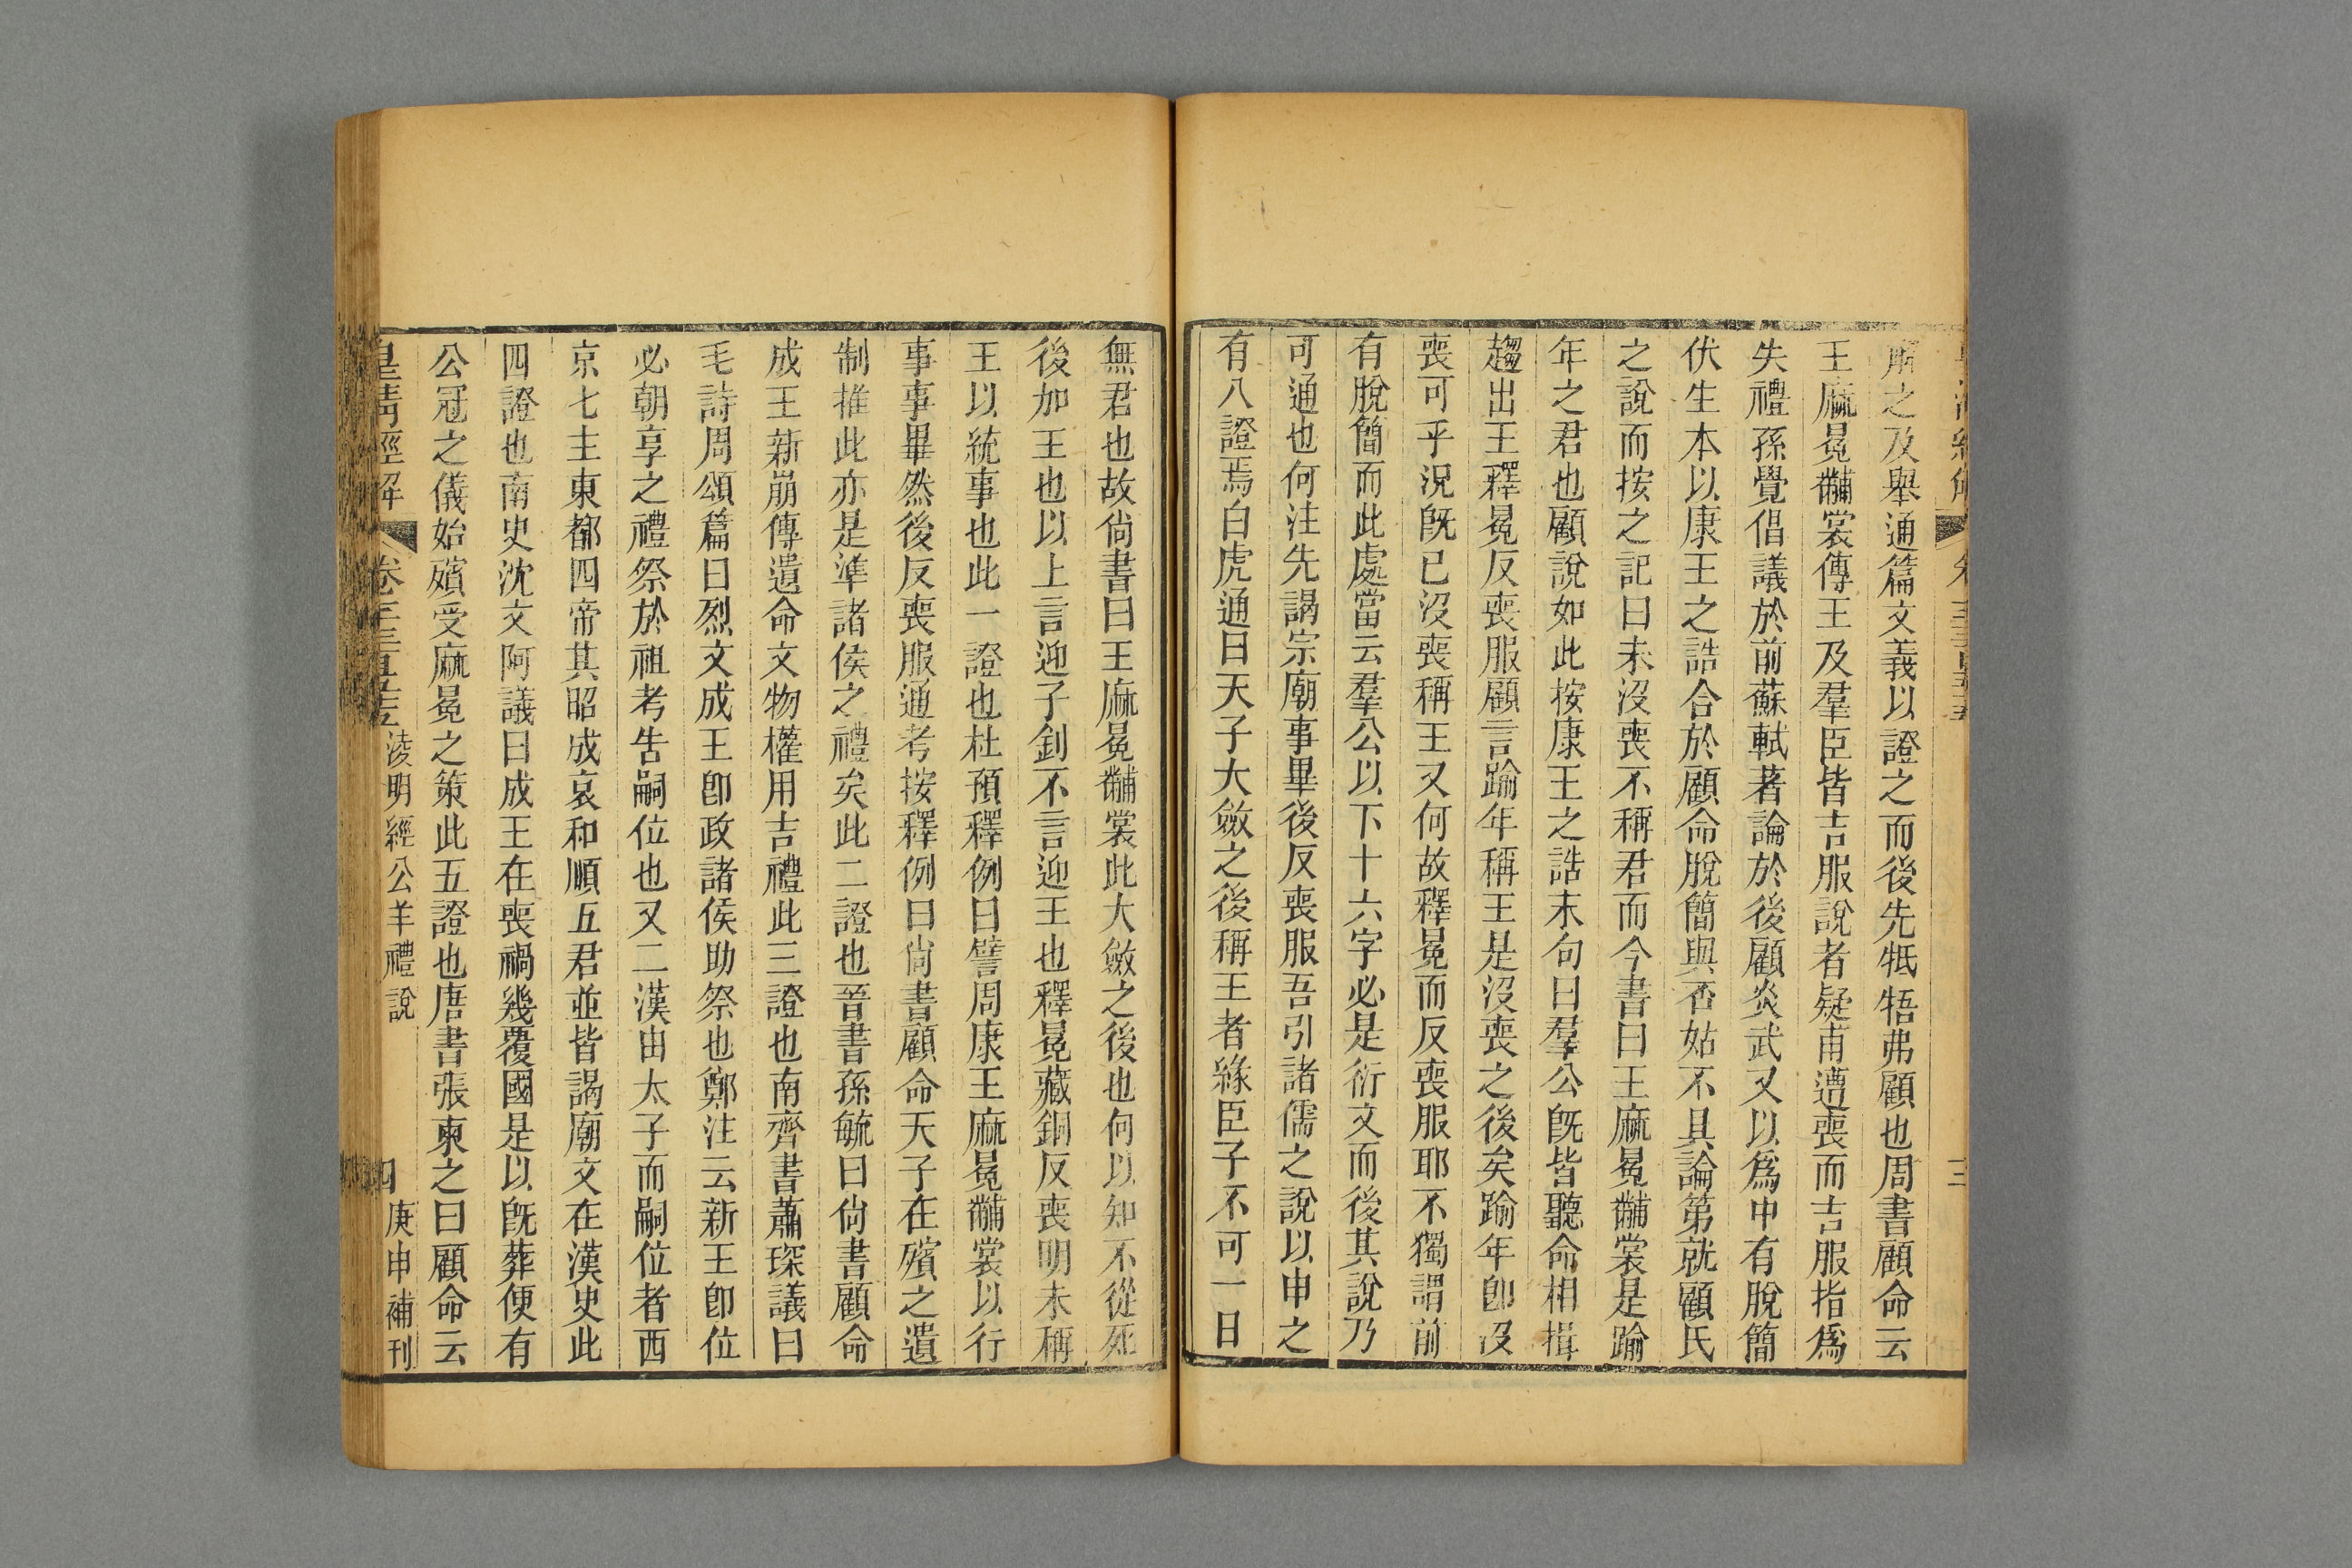 之及舉通篇文義以證之而後先牴牾弗顧也周書顧命云
王麻冕黼裳傳王及羣臣皆吉服說者疑甫遭喪而吉服指爲
失禮孫覺倡議於前蘇軾著論於後顧炎武又以爲中有脫簡
伏生本以康王之誥合於顧命脫簡與否姑不具論第就顧氏
之說而按之記曰未沒喪不稱君而今書曰王麻冕黼裳是踰
年之君也顧說如此按康王之誥末句曰羣公旣皆聽命相揖
趨出王釋冕反喪服顧言踰年稱王是沒喪之後矣踰年卽沒
喪可乎況旣已沒喪稱王又何故釋冕而反喪服耶不獨謂前
有脫簡而此處當云羣公以下十六字必是衍文而後其說乃
可通也何注先謁宗廟事畢後反喪服吾引諸儒之說以申之
有八證焉白虎通曰天子大斂之後稱王者緣臣子不可一日
無君也故尙書曰王麻冕黼裳此大斂之後也何以知不從死
後加王也以上言迎子釗不言迎王也釋冕藏銅反喪明未稱
王以統事也此一證也杜預釋例曰譬周康王麻冕黼裳以行
事事畢然後反喪服通考按釋例曰尙書顧命天子在殯之遺
制推此亦是準諸侯之禮矣此二證也晉書孫毓曰尙書顧命
成王新崩傳遺命文物權用吉禮此三證也南齊書蕭琛議曰
毛詩周頌篇曰烈文成王卽政諸侯助祭也鄭注云新王卽位
必朝享之禮祭於祖考告嗣位也又二漢由太子而嗣位者西
京七主東都四帝其昭成哀和順五君並皆謁廟文在漢史此
四證也南史沈文阿議曰成王在喪禍幾覆國是以旣葬便有
公冠之儀始殯受麻冕之策此五證也唐書張柬之曰顧命云
皇淸經解 卷 淩明經公羊禮說 四 庚申補刊